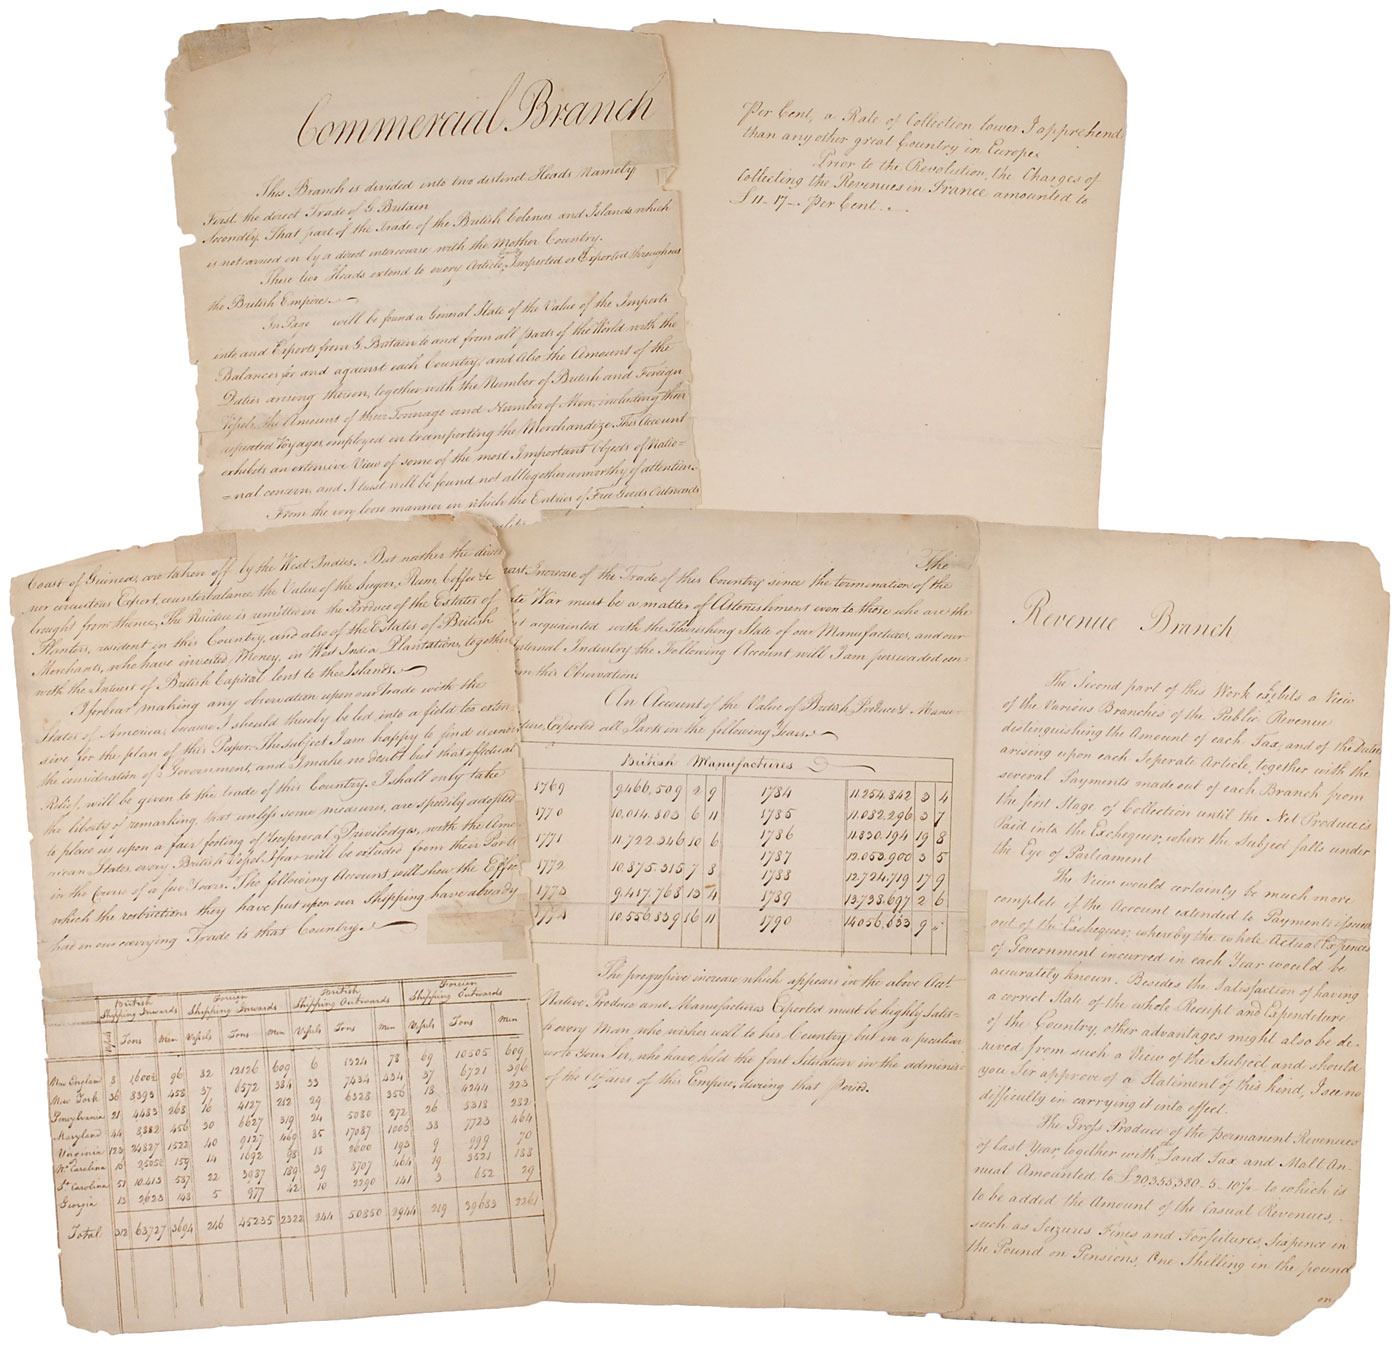 Commercial Branch
This Branch is divided into two distinct Heads Namely
First. the direct Trade of G. Britain
Secondly. That part of the Trade of the British Colonies and Islands which
is not carried on by a direct intercourse with the Mother Country.
These two Heads extend to every Article, Imported or Exported throughout
the British Empire.
In Page will be found a General State of the Value of the Imports
into and Exports from G. Britain to and from all parts of the World with the
Balances for and against each Country, and Also the Amount of the
Duties arising thereon, together with the Number of British and Foreign
Vessels, the Amount of their Tonnage and Number of Men, including their
repeated Voyages, employed in transporting the Merchandize. This Account
exhibits an extensive View of some of the most Important Objects of Natio=
=nal concern, and I trust will be found not altogether unworthy of attention.
From the very loose manner in which the Entries of Free Goods Outwards
Per Cent, a Rate of Collection lower I apprehend
than any other great Country in Europe.
Prior to the Revolution, the Charges of
Collecting the Revenues in France amounted to
£11-17-. Per Cent.
Coast of Guinea, are taken off by the West Indies. But neither the direct
nor circuitous Export, counterbalance the Value of the Sugar, Rum, Coffee &c
brought from thence, The Residue is remitted in the Produce of the Estates of
Planters, resident in this Country, and also of the Estates of British
Merchants, who have invested Money, in West India Plantations, together
with the Interest of British Capital lent to the Islands.
I forbear making any observation upon our trade with the
States of America, because I should thereby be led into a field too exten
sive for the plan of this Paper. The subject I am happy to find is under
the consideration of Government, and I make no doubt but that effectual
Relief, will be given to the trade of this Country. I shall only take
the liberty of remarking that unless some measures, are speedily adopted
to place us upon a fair footing of reciprocal Priviledges, with the Ame-
rican States every British Vessel I fear will be excluded from their Ports
in the Course of a few Years. The following Account, will show the Effec
which the restrictions they have put upon our Shipping have already
had in our carrying Trade to that Country.
British Shipping Inwards Foreign Shipping Inwards British Shipping Outwards Foreign Shipping Outwards
Vessels Tons Men Vessels Tons Men Vessels Tons Men Vessels Tons Men
New England 8 1600 96 32 12126 609 6 1324 78 69 10505 609
New York 36 8393 458 37 6572 384 33 7434 434 37 6721 396
Pensylvania 21 4483 268 16 4127 212 29 6328 356 18 4244 223
Maryland 44 8882 456 30 6627 319 24 5080 272 26 5318 282
Virginia 123 24827 1522 40 9127 469 85 17087 1006 38 7723 464
No. Carolina 16 2505 159 14 1692 98 18 2600 193 9 999 70
So. Carolina 51 10413 537 22 3987 189 39 8707 464 19 3521 188
Georgia 13 2623 148 5 977 42 10 2290 141 3 652 29
Total 312 63727 3694 246 45235 2322 244 50850 2944 219 39683 2261
The
vast Increase of the Trade of this Country since the termination of the
late War must be a matter of Astonishment even to those who are the
st acquainted with the Flourishing State of our Manufactures, and our
nternal Industry the Following Account will I am persuaded con-
rm this Observation.
An Account of the Value of British Produce & Manu-
cture, Exported all Parts in the following Years.
British Manufactures
1769 9.466,509 2 9 1784 11.254.842 3 4
1770 10,014.803 6 11 1785 11.082.296 3 7
1771 11.722.346 10 6 1786 11.830.194 19 8
1772 10.875.315 7 8 1787 12.053,900 3 5
1773 9.417,768 13 4 1788 12,724,719 17 9
1774 10.556.839 16 11 1789 13,728.697 2 6
1790 14.056.633 9 "
The progressive increase which appears in the above Acct.
Native Produce and Manufactures Exported must be highly satis-
to every Man who wishes well to his Country, but in a peculiar
ner to Your Sir, who have held the first Situation in the adminis-
of the Affairs of this Empire, during that Period.
Revenue Branch
The Second part of this Work exhibits a View
of the Various Branches of the Public Revenue
distinguishing the Amount of each Tax, and of the Duties
arising upon each Seperate Article, together with the
several Payments made out of each Branch from
the first Stage of Collection until the Net Produce is
Paid into the Exchequer, where the Subject falls under
the Eye of Parliament.
The View would certainly be much more
complete if the Account extended to Payments issued
out of the Exchequer, whereby the whole Actual Expences
of Government incurred in each Year would be
accurately known. Besides the Satisfaction of having
a correct State of the whole Receipt and Expenditure
of the Country, other advantages might also be de-
rived from such a View of the Subject and should
you Sir approve of a Statement of this kind, I see no
difficulty in carrying it into effect.
The Gross Produce of the permanent Revenues
of last Year, together with Land Tax and Malt An-
nual Amounted to £20,353,380-5-10¾ to which is
to be added the Amount of the Casual Revenues,
such as Seizures Fines and Forfeitures, Sixpence in
the Pound on Pensions, One Shilling in the pound
on